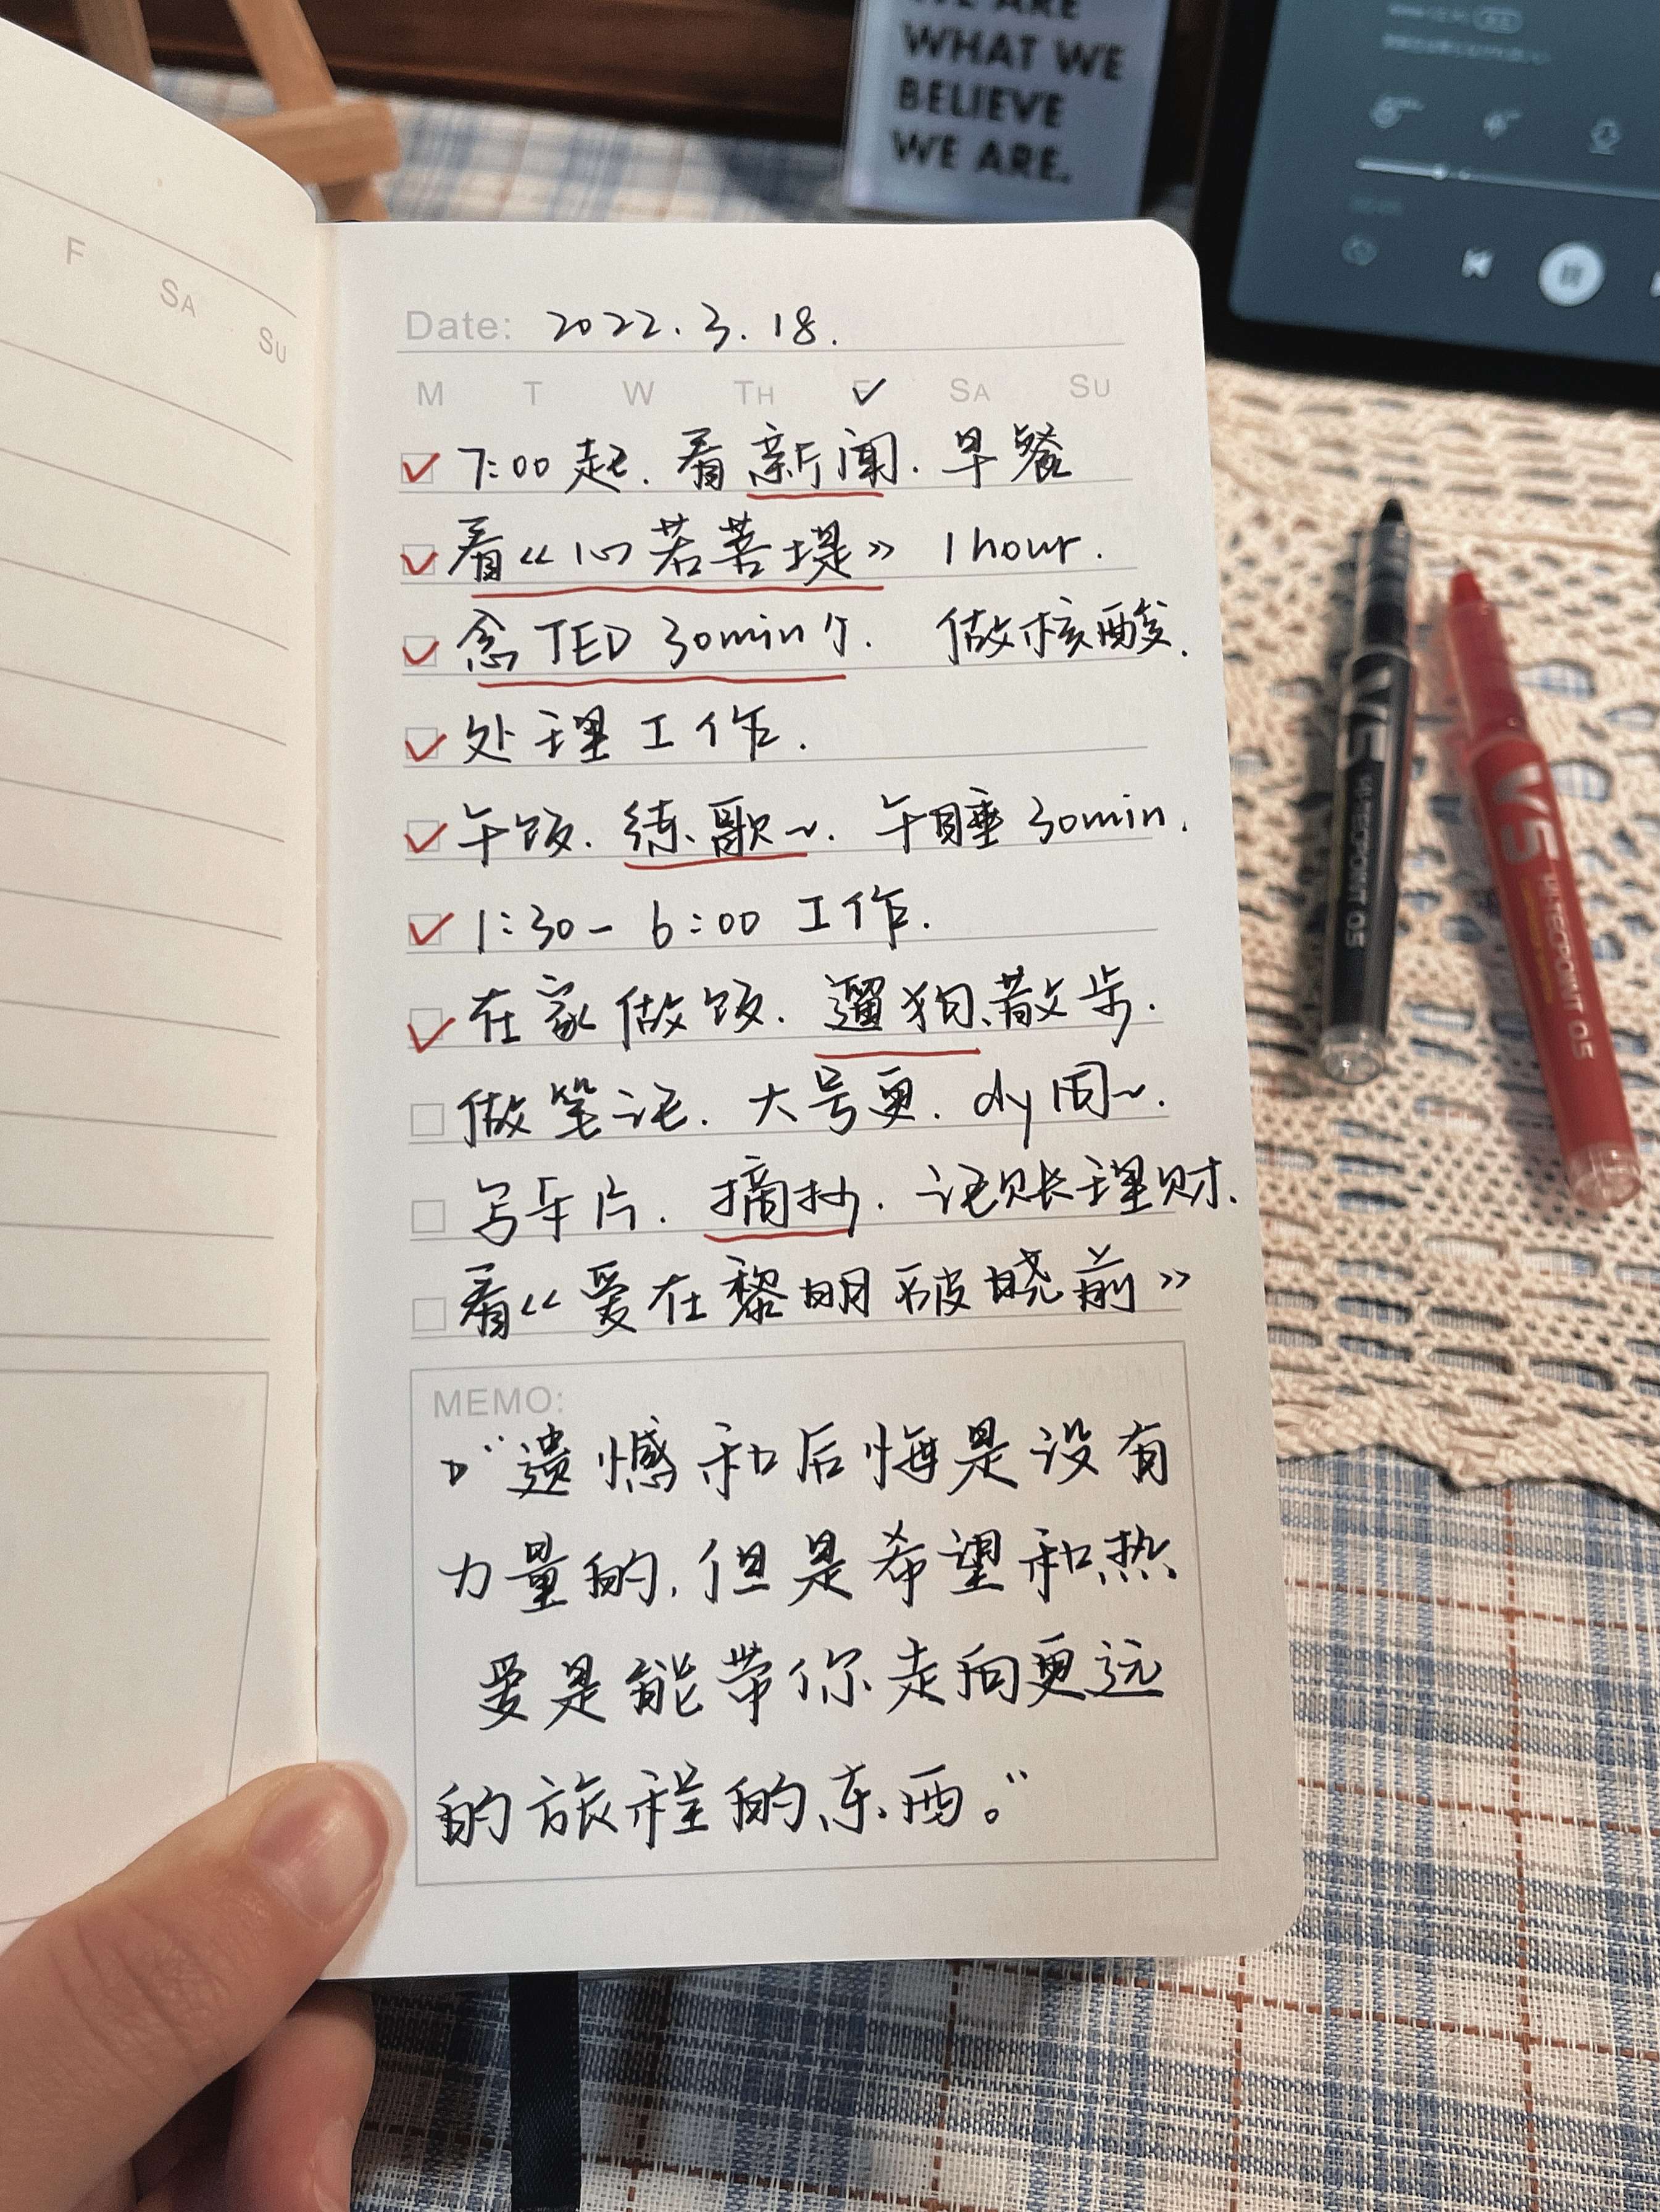 WE ARE
WHAT WE
BELIEVE
WE ARE.
F SA SU
Date: 2022.3.18.
M T W TH F SA SU
7:00起.看新闻.早餐
看《心若菩提》 1hour.
念TED 30min个. 做核酸.
处理工作.
午饭.练歌~.午睡30min.
1:30-6:00 工作.
在家做饭.遛狗、散步.
做笔记.大号更.dy周~.
写卡片.摘抄.记账理财.
看《爱在黎明破晓前》
MEMO:
“遗憾和后悔是没有
力量的,但是希望和热
爱是能带你走向更远
的旅程的东西。”
V5 HI-TECPOINT 0.5
V5 HI-TECPOINT 0.5